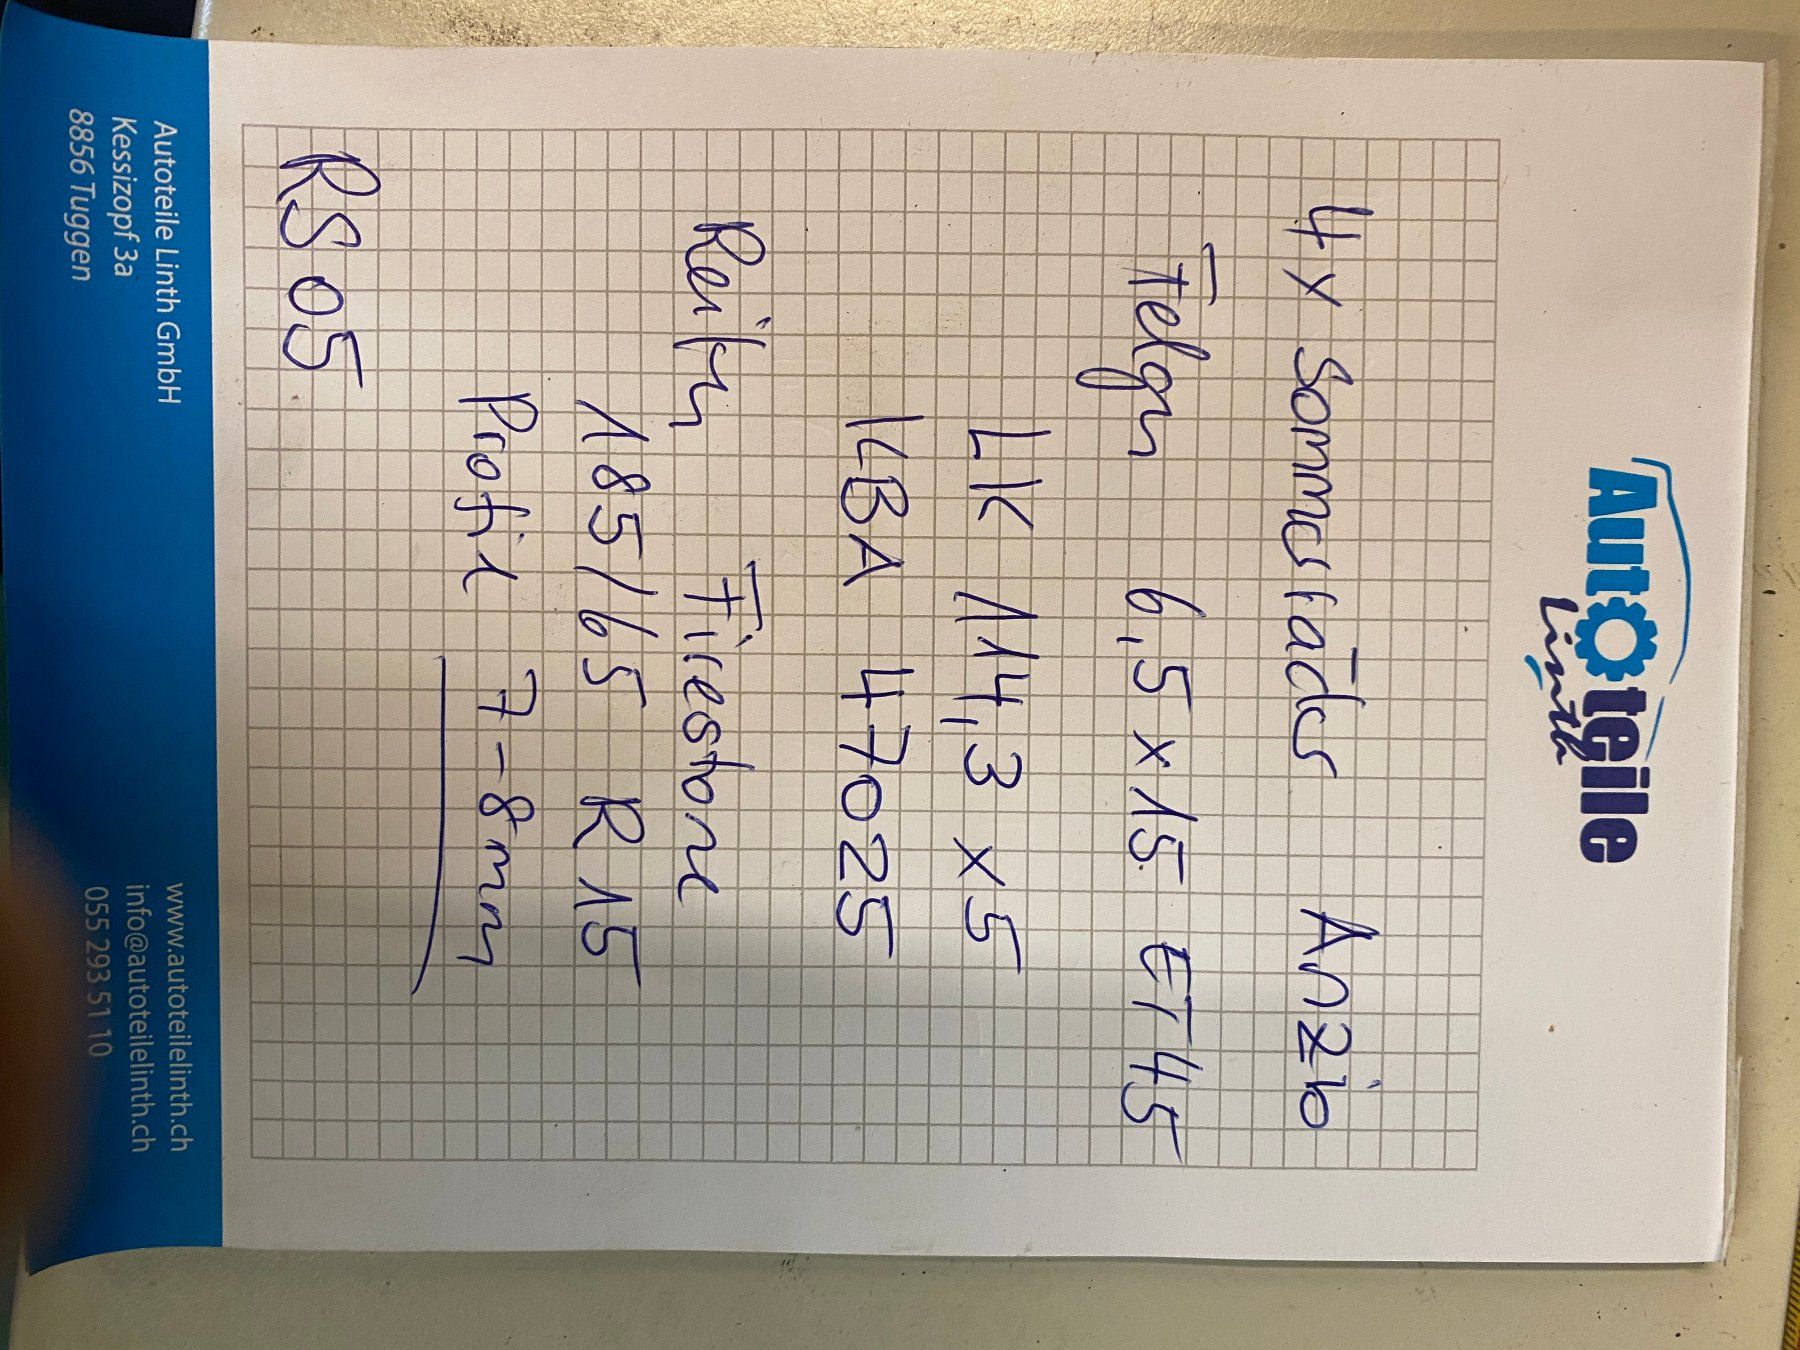 Autoteile
Linth
4x Sommerräder Anzio
Felgen 6,5 x 15 ET 45
LK 114,3 x 5
KBA 47025
Reifen Firestone
185/65 R 15
Profil 7-8mm
RS 05
Autoteile Linth GmbH
Kessizopf 3a
8856 Tuggen
www.autoteilelinth.ch
info@autoteilelinth.ch
055 293 51 10